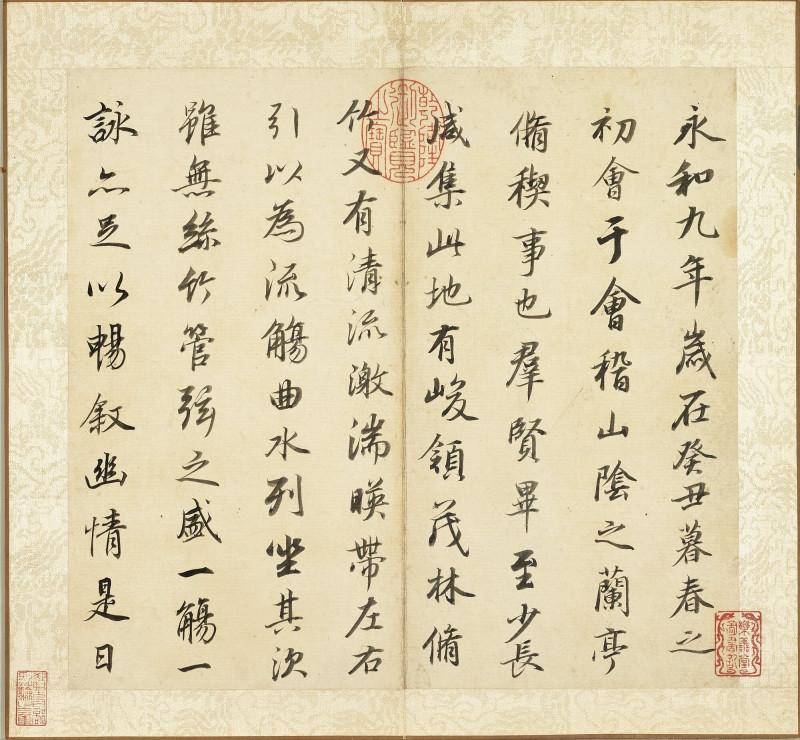 永和九年歲在癸丑暮春之
初會于會稽山陰之蘭亭
脩稧事也羣賢畢至少長
咸集此地有峻領茂林脩
竹又有清流激湍暎帶左右
引以為流觴曲水列坐其次
雖無絲竹管弦之盛一觴一
詠亦足以暢叙幽情是日
乾隆御覽之寶